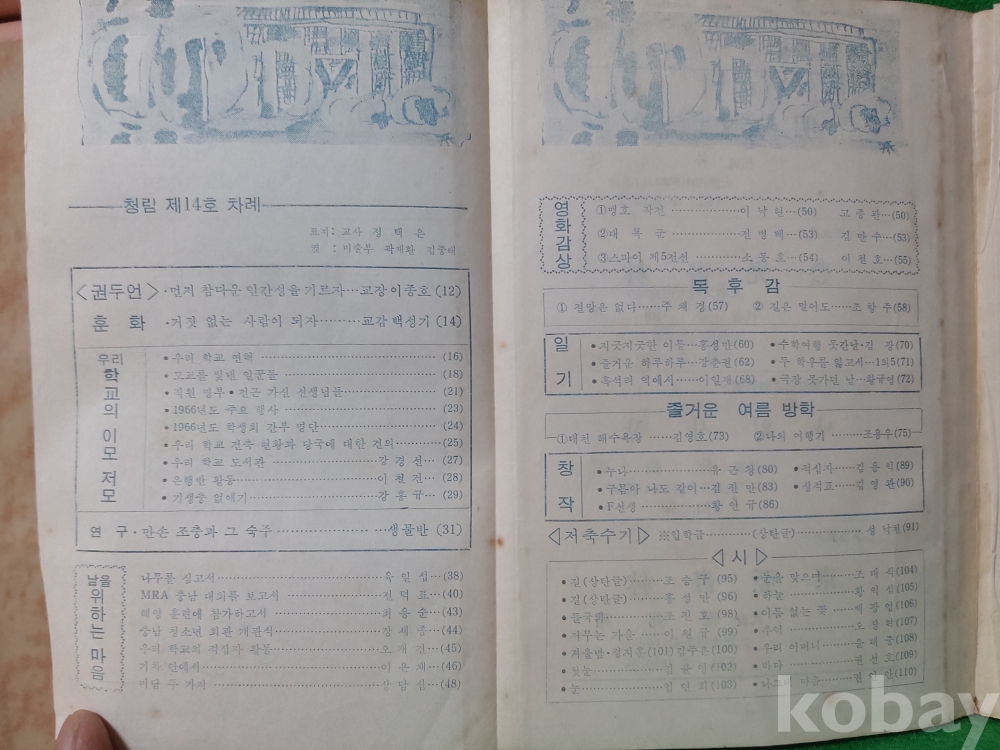 청림 제14호 차례
표지: 교사 정 택 은
컷 : 미술부 곽개환 김중태
<권두언> ·먼저 참다운 인간성을 기르자…교장 이종호 (12)
훈 화 ·거짓 없는 사람이 되자………교감 백성기 (14)
우리 학교의 이모 저모
•우리 학교 연혁………(16)
•모교를 빛낸 일꾼들………(18)
•직원 명부 •전근 가신 선생님들………(21)
•1966년도 주요 행사………(23)
•1966년도 학생회 간부 명단………(24)
•우리 학교 건축 현황과 당국에 대한 건의………(25)
•우리 학교 도서관………강 경 선…(27)
•은행반 활동………이 철 건…(28)
•기생충 없애기………강 흥 규…(29)
연 구 ·간손 조충과 그 숙주………생물반 (31)
남을 위하는 마음
나무를 심고서………육 인 섭…(38)
MRA 충남 대회를 보고서………전 덕 표…(40)
해양 훈련에 참가하고서………최 용 순…(43)
충남 청소년 회관 개관식………장 세 종…(44)
우리 학교의 적십자 활동………오 재 진…(45)
기차 안에서………이 은 재…(46)
미담 두 가지………상 담 실…(48)
영화감상
①맹호 작전………이 낙 현…(50) 고 종 관…(50)
②대 폭 군………전 명 배…(53) 김 만 수…(53)
③스파이 제5전선………소 웅 호…(54) 이 천 호…(55)
독 후 감
① 절망은 없다……주 재 경(57) ② 길은 멀어도……조 항 주(58)
일 기
•지긋지긋한 이틀…홍성만(60) •수학여행 못간날·김 강(70)
•즐거운 하루하루…강춘권(62) •두 학우를 잃고서…1의5(71)
•흑석리 역에서……이일재(68) •극장 못가던 날…황규엽(72)
즐거운 여름 방학
①대천 해수욕장……김영호(73) ②나의 여행기……조용우(75)
창 작
•누나………유 근 창(80) •적십자……김 용 익(89)
•구름아 나도 같이…김 진 만(83) •성적표……김 영 관(90)
•F선생………황 인 규(86)
<저축수기> ※입학금………(상탄글)……성 낙 원(91)
<시>
•길(상탄글)……조 승 구 (95) •눈을 맞으며…조 대 식(104)
•길(상탄글)……홍 성 만 (96) •하늘……황 익 심(105)
•들국화……조 진 호 (98) •이름 없는 꽃…박 광 엽(106)
•저무는 가을…이 원 규 (99) •추억……오 창 석(107)
•겨울밤·설지홍(101)김주흔(100) •우리 어머니…윤 태 중(108)
•첫눈………(102) •바다……권 선 호(109)
•눈………임 헌 희(103) (110)
kobay